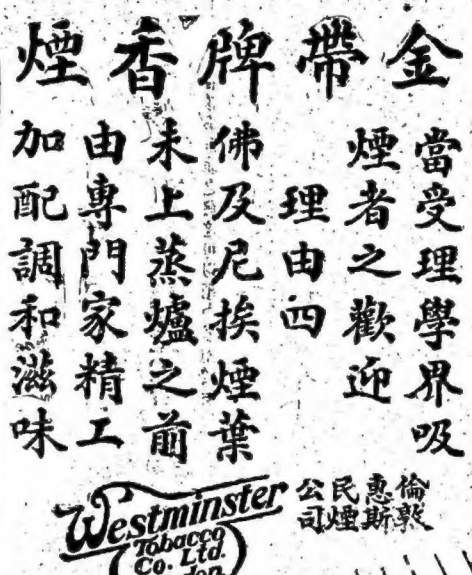 金帶牌香煙
當受理學界吸
煙者之歡迎
理由四
佛及尼挨煙葉
未上蒸爐之前
由專門家精工
加配調和滋味
倫敦
惠斯
民煙
公司
Westminster
Tobacco
Co. Ltd.